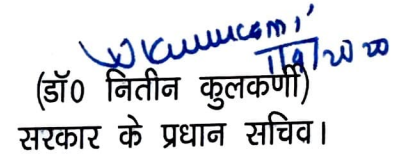 1/9/2020
(डॉ0 नितीन कुलकर्णी)
सरकार के प्रधान सचिव।